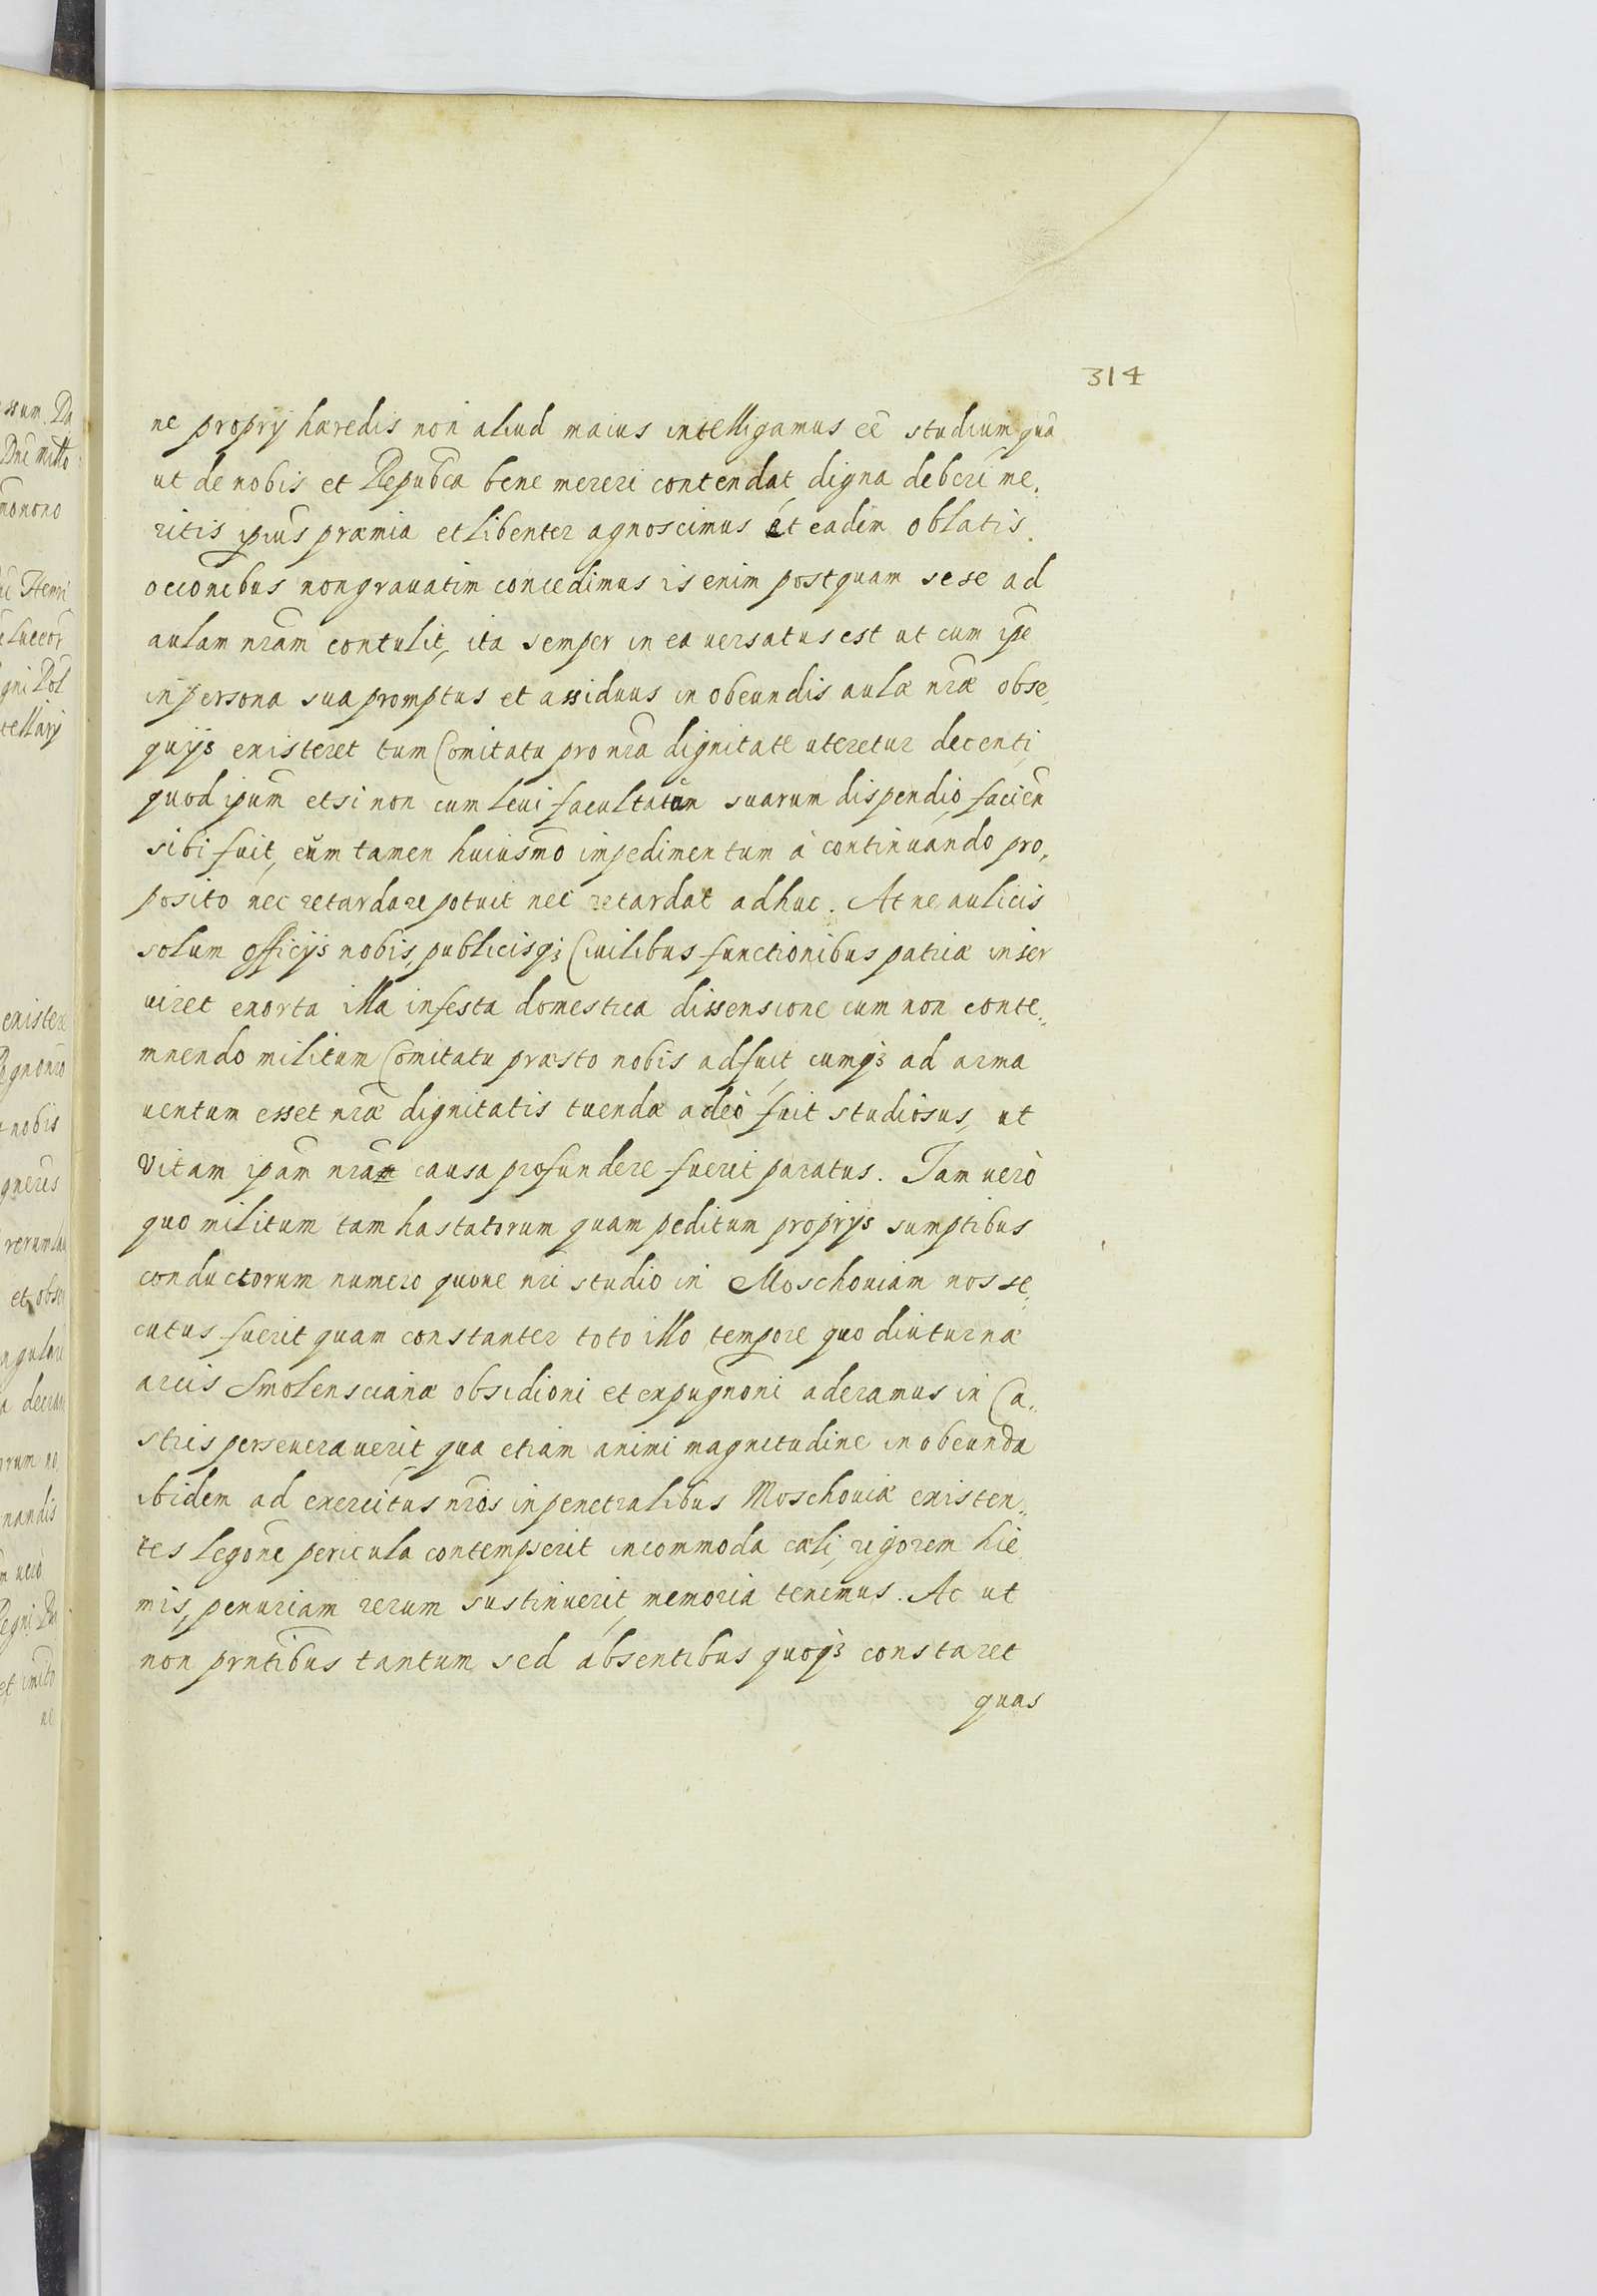 314
ne proprij hæredis non aliud maius intelligamus eē studium quā
ut de nobis et Repubca bene mereri contendat, digna deberi me,
ritis ipius præmia et libenter agnoscimus et eadem oblatis
occonibus non grauatim concedimus is enim postquam sese ad
aulam nram contulit, ita semper in ea uersatus est ut cum ipe
in persona sua promptus et assiduus in obeundis aulæ nræ obse,
quijs existeret tum Comitatu pro nra dignitate uteretur decenti,
quod ipum etsi non cum leui facultatum suarum dispendio facien
sibi fuit, eum tamen huiusmo impedimentum à continuando pro,
posito nec retardare potuit nec retardat adhuc. At ne aulicis
solum officijs nobis, publicisqȝ Ciuilibus functionibus patriæ inser
uiret exorta illa infesta domestica dissensione cum non conte,,
mnendo militum Comitatu præsto nobis adfuit, cumqȝ ad arma
uentum esset nræ dignitatis tuendæ adeò fuit studiosus, ut
vitam ipam nra causa profundere fuerit paratus. Iam uerò
quo militum tam hastatorum quam peditum proprijs sumptibus
conductorum numero quoue nri studio in Moschouiam nos se,
cutus fuerit quam constanter toto illo tempore quo diuturnæ
arcis Smolenscianæ obsidioni et expugnoni aderamus in Ca,,
stris perseuerauerit, qua etiam animi magnitudine in obeunda
ibidem ad exercitus nros in penetralibus Moschouiæ existen,,
tes legone pericula contempserit incommoda cæli, rigorem hie
mis, penuriam rerum sustinuerit, memoria tenemus. Ac ut
non prntibus tantum, sed absentibus quoqȝ constaret
quas